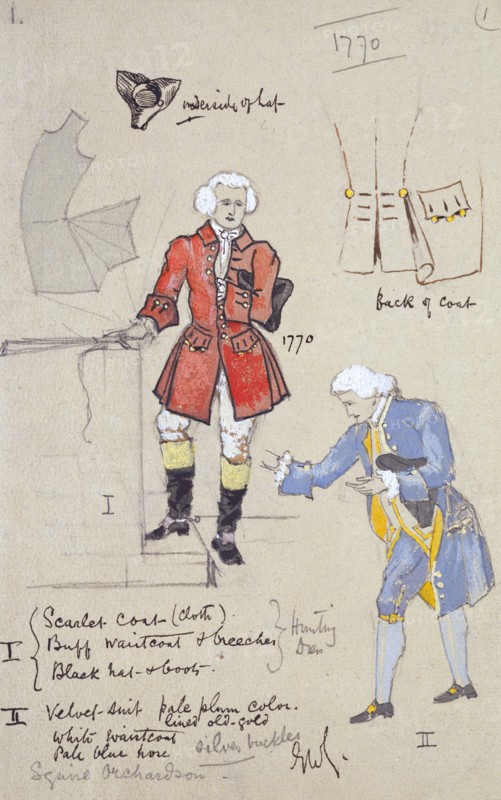 1.
1
1770
underside of hat
back of coat
1770
I
I
Scarlet coat (cloth).
Buff waistcoat & breeches
Black hat & boots.
Hunting
Dress
II
Velvet suit pale plum color.
lined old-gold
white waistcoat
Pale blue hose
silver buckles
Squire Orchardson -
II